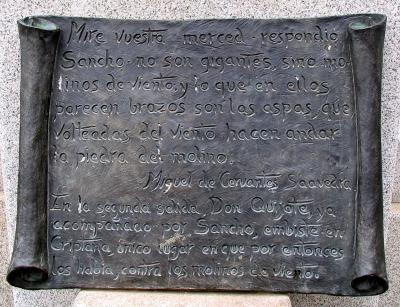 Mire vuestra merced - respondió
Sancho - no son gigantes, sino mo-
linos de viento, y lo que en ellos
parecen brazos son las aspas, que
volteadas del viento hacen andar
la piedra del molino.
Miguel de Cervantes Saavedra.
En la segunda salida Don Quijote, ya
acompañado por Sancho, embiste en
Criptana único lugar en que por entonces
los había, contra los molinos de viento.